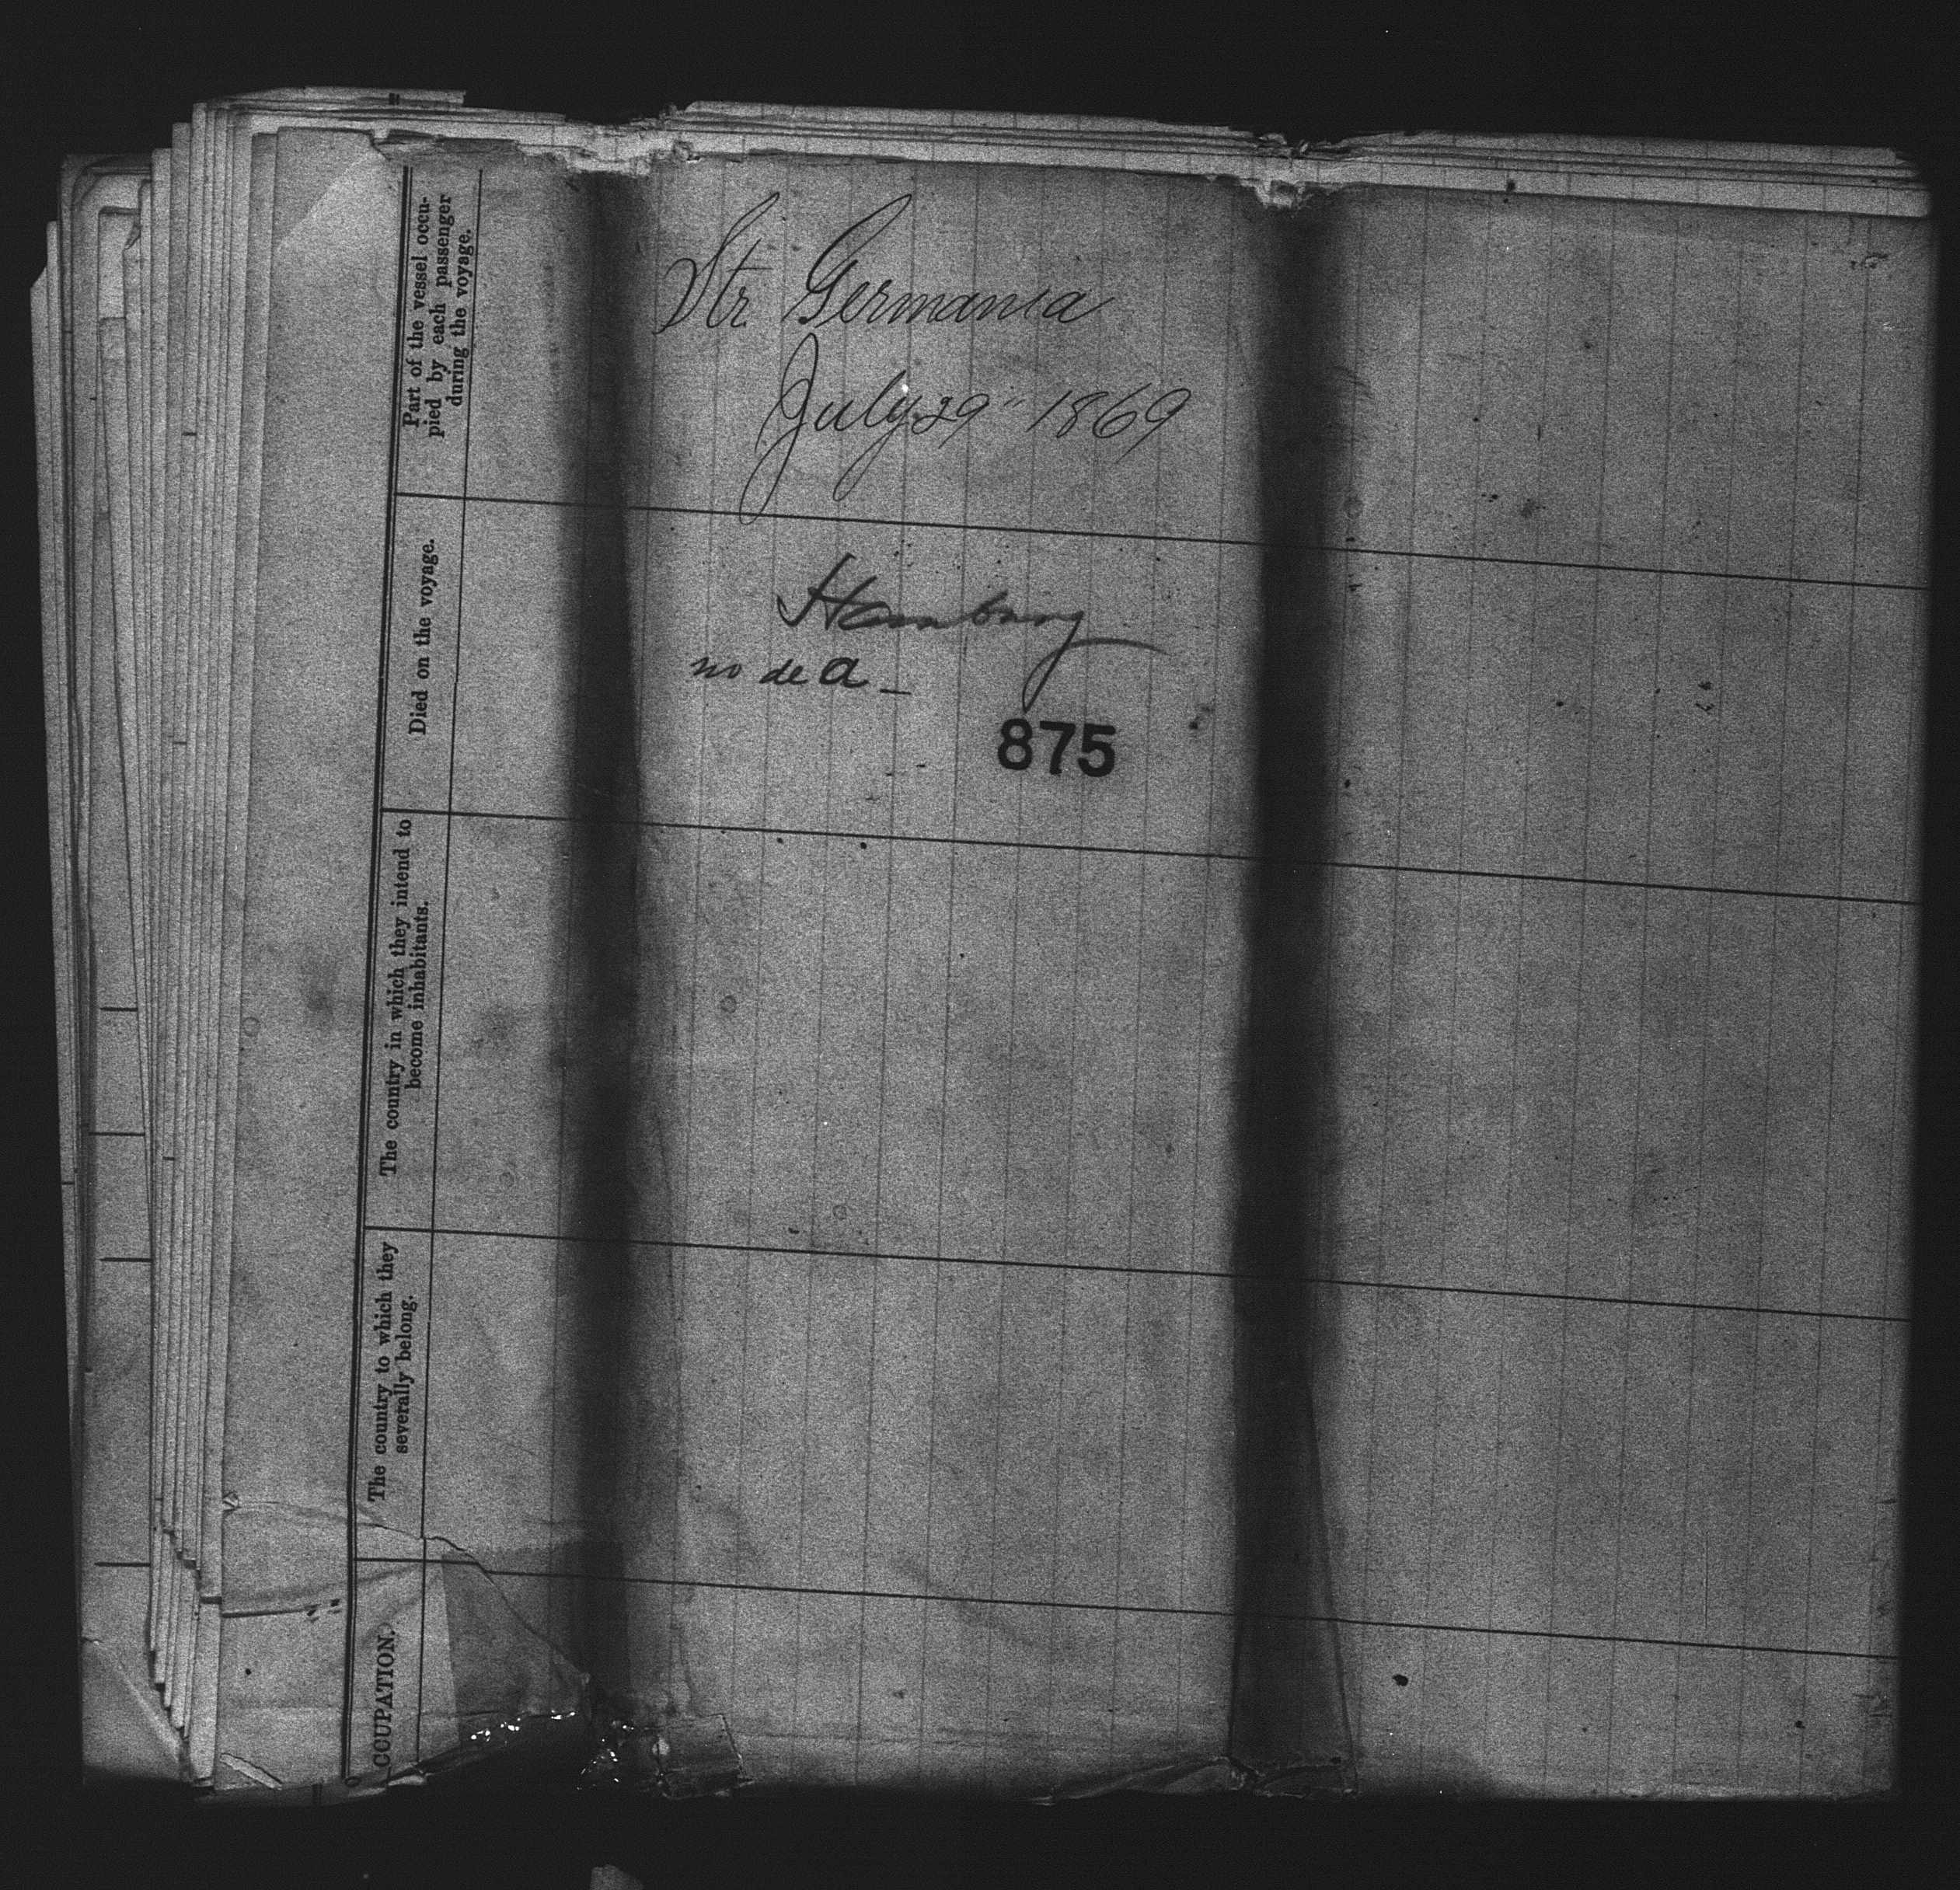 Str. Germania
July 29" 1869
Hamburg
no de a -
875
Part of the vessel occu-
pied by each passenger
during the voyage.
Died on the voyage.
The country in which they intend to
become inhabitants.
The country to which they
severally belong.
CCUPATION.